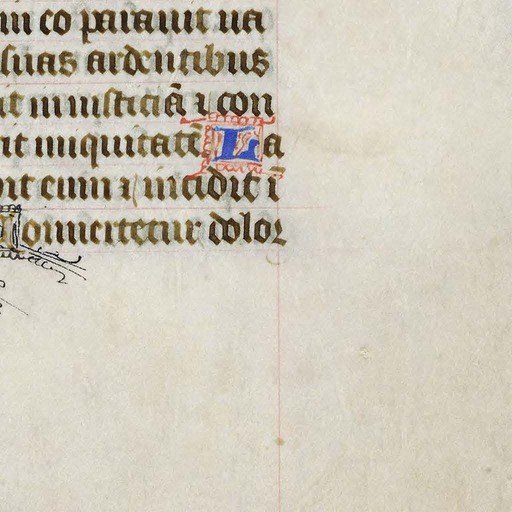 in eo parauit ua
suas ardentibus
it iniusticiā ⁊ con
it iniquitatē La
dit eum ⁊ incidit ī
Conuertetur dolor